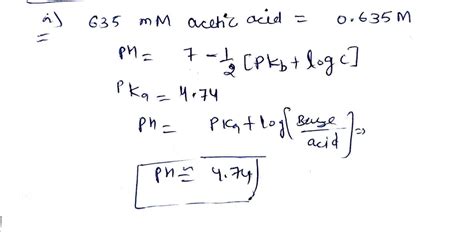 ii) 635 mM acetic acid = 0.635 M
PH = 7 - 1/2 [PKb + log C]
PKa = 4.74
PH = PKa + log [Base/acid] ⇒
PH ≈ 4.74